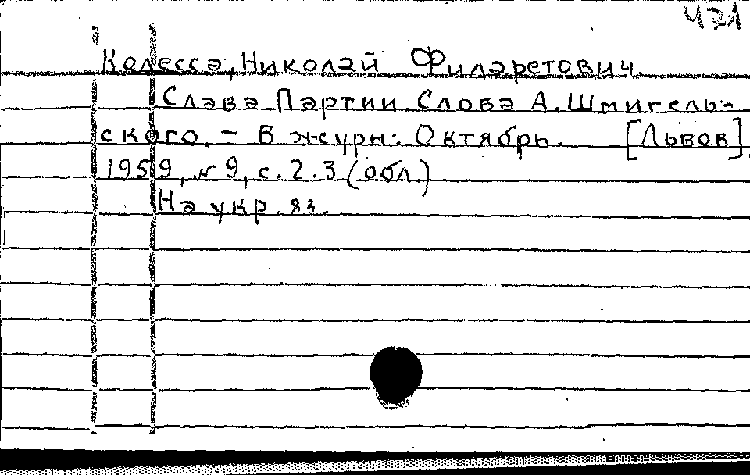 421
Колесса, Николай Филаретович
Слава Партии Слова А. Шмигель-
ского. – В журн.: Октябрь. [Львов],
1959, № 9, с. 2.3 (обл.)
На укр. яз.